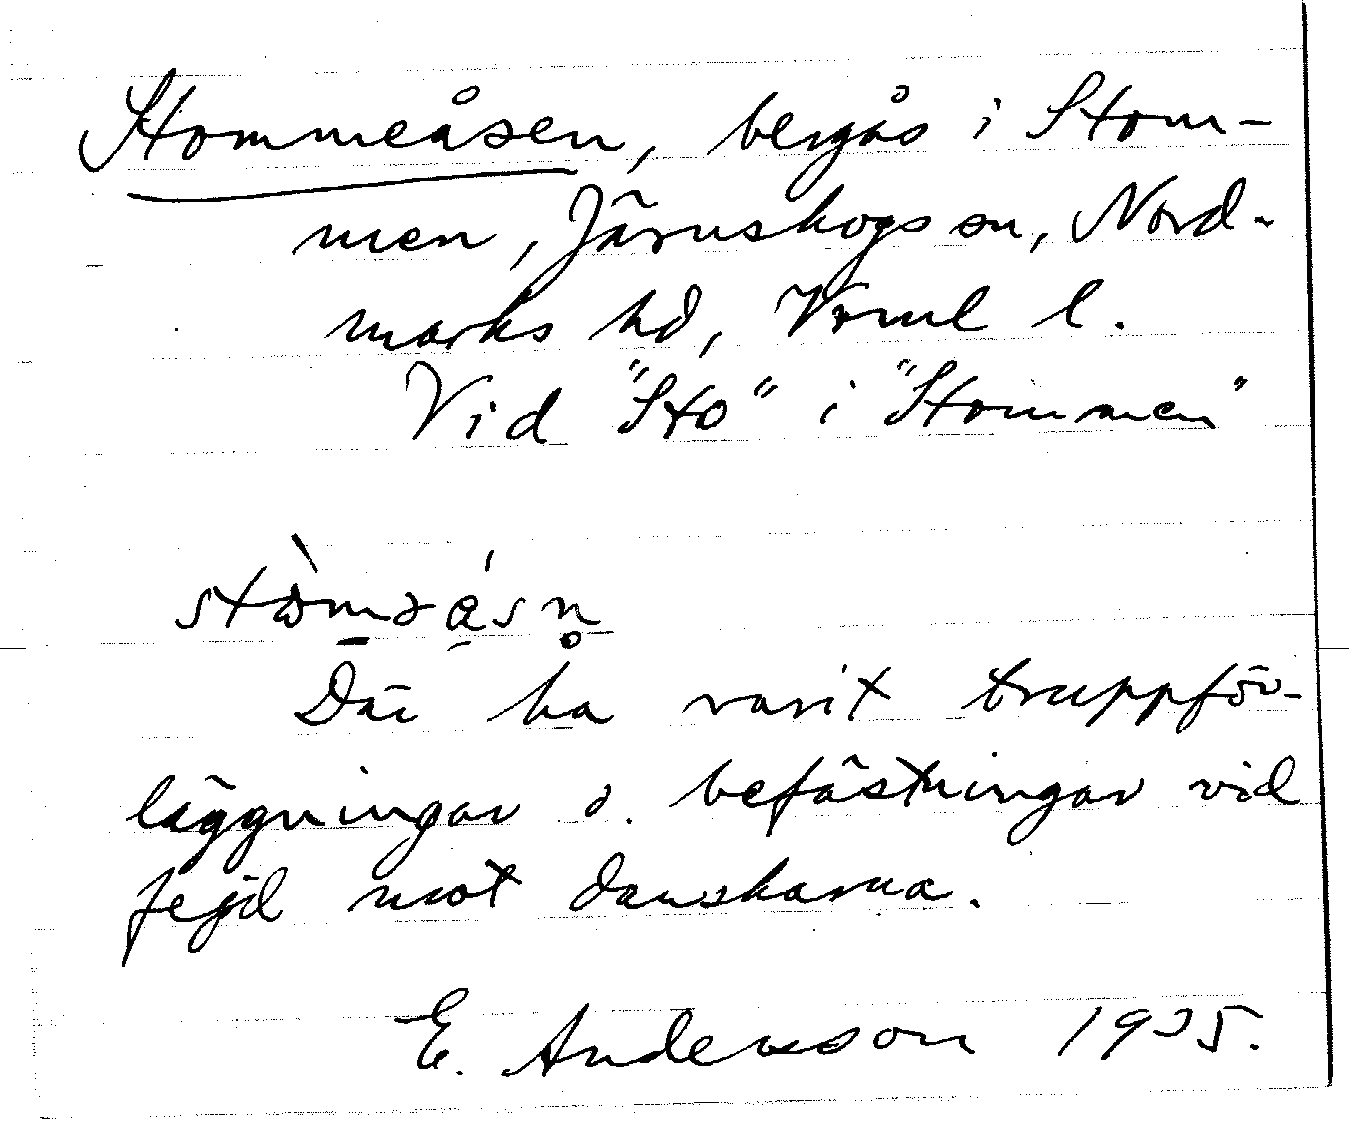 Stommeåsen, bergås i Stom-
men, Järnskogs sn, Nord-
marks hd, Vrml l.
Vid "Sto" i "Stommen"
Där ha varit truppför-
läggningar o. befästningar vid
fejd mot danskarna.
E. Andersson 1935.